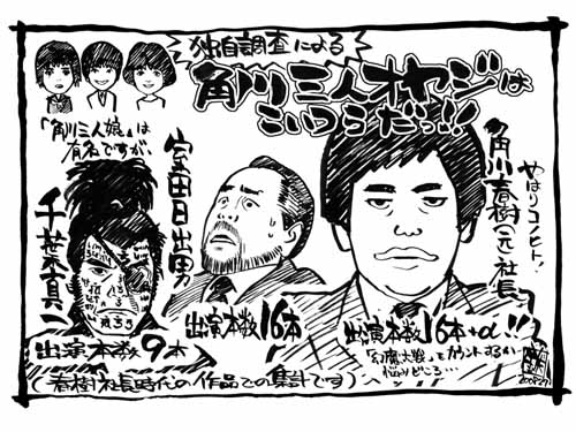 独自調査による
角川三人オヤジは
こいつらだっ!!
「角川三人娘」は
有名ですが、
千葉真一
出演本数9本
室田日出男
出演本数16本
やはりコノヒト!
角川春樹(元)社長
出演本数16本+α!!
「幻魔大戦」をカウントするか
悩みどころ…
(春樹社長時代の作品での集計です)